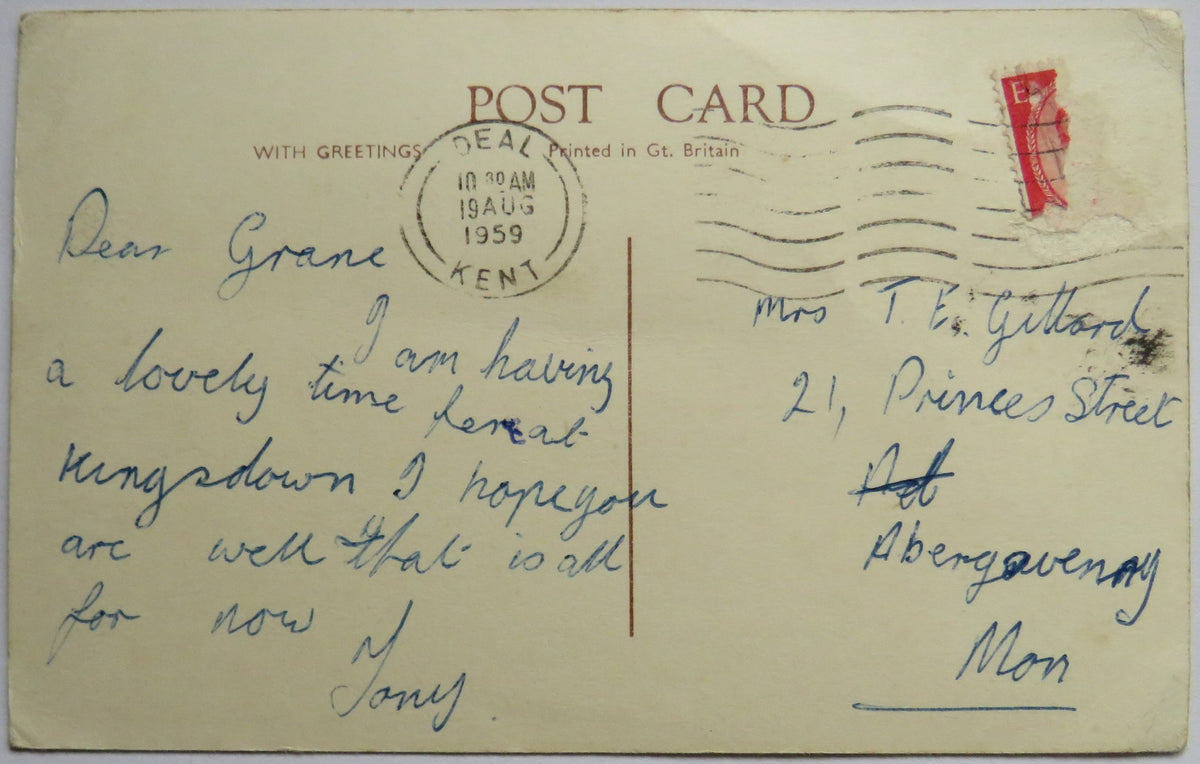 POST CARD
WITH GREETINGS
Printed in Gt. Britain
DEAL
10 30 AM
19 AUG
1959
KENT
E
Dear Grane
I am having
a lovely time
at
Kingsdown I hope you
are well that is all
for now
Tony
Mrs T. E. Gillard
21, Princes Street
Abergavenny
Mon